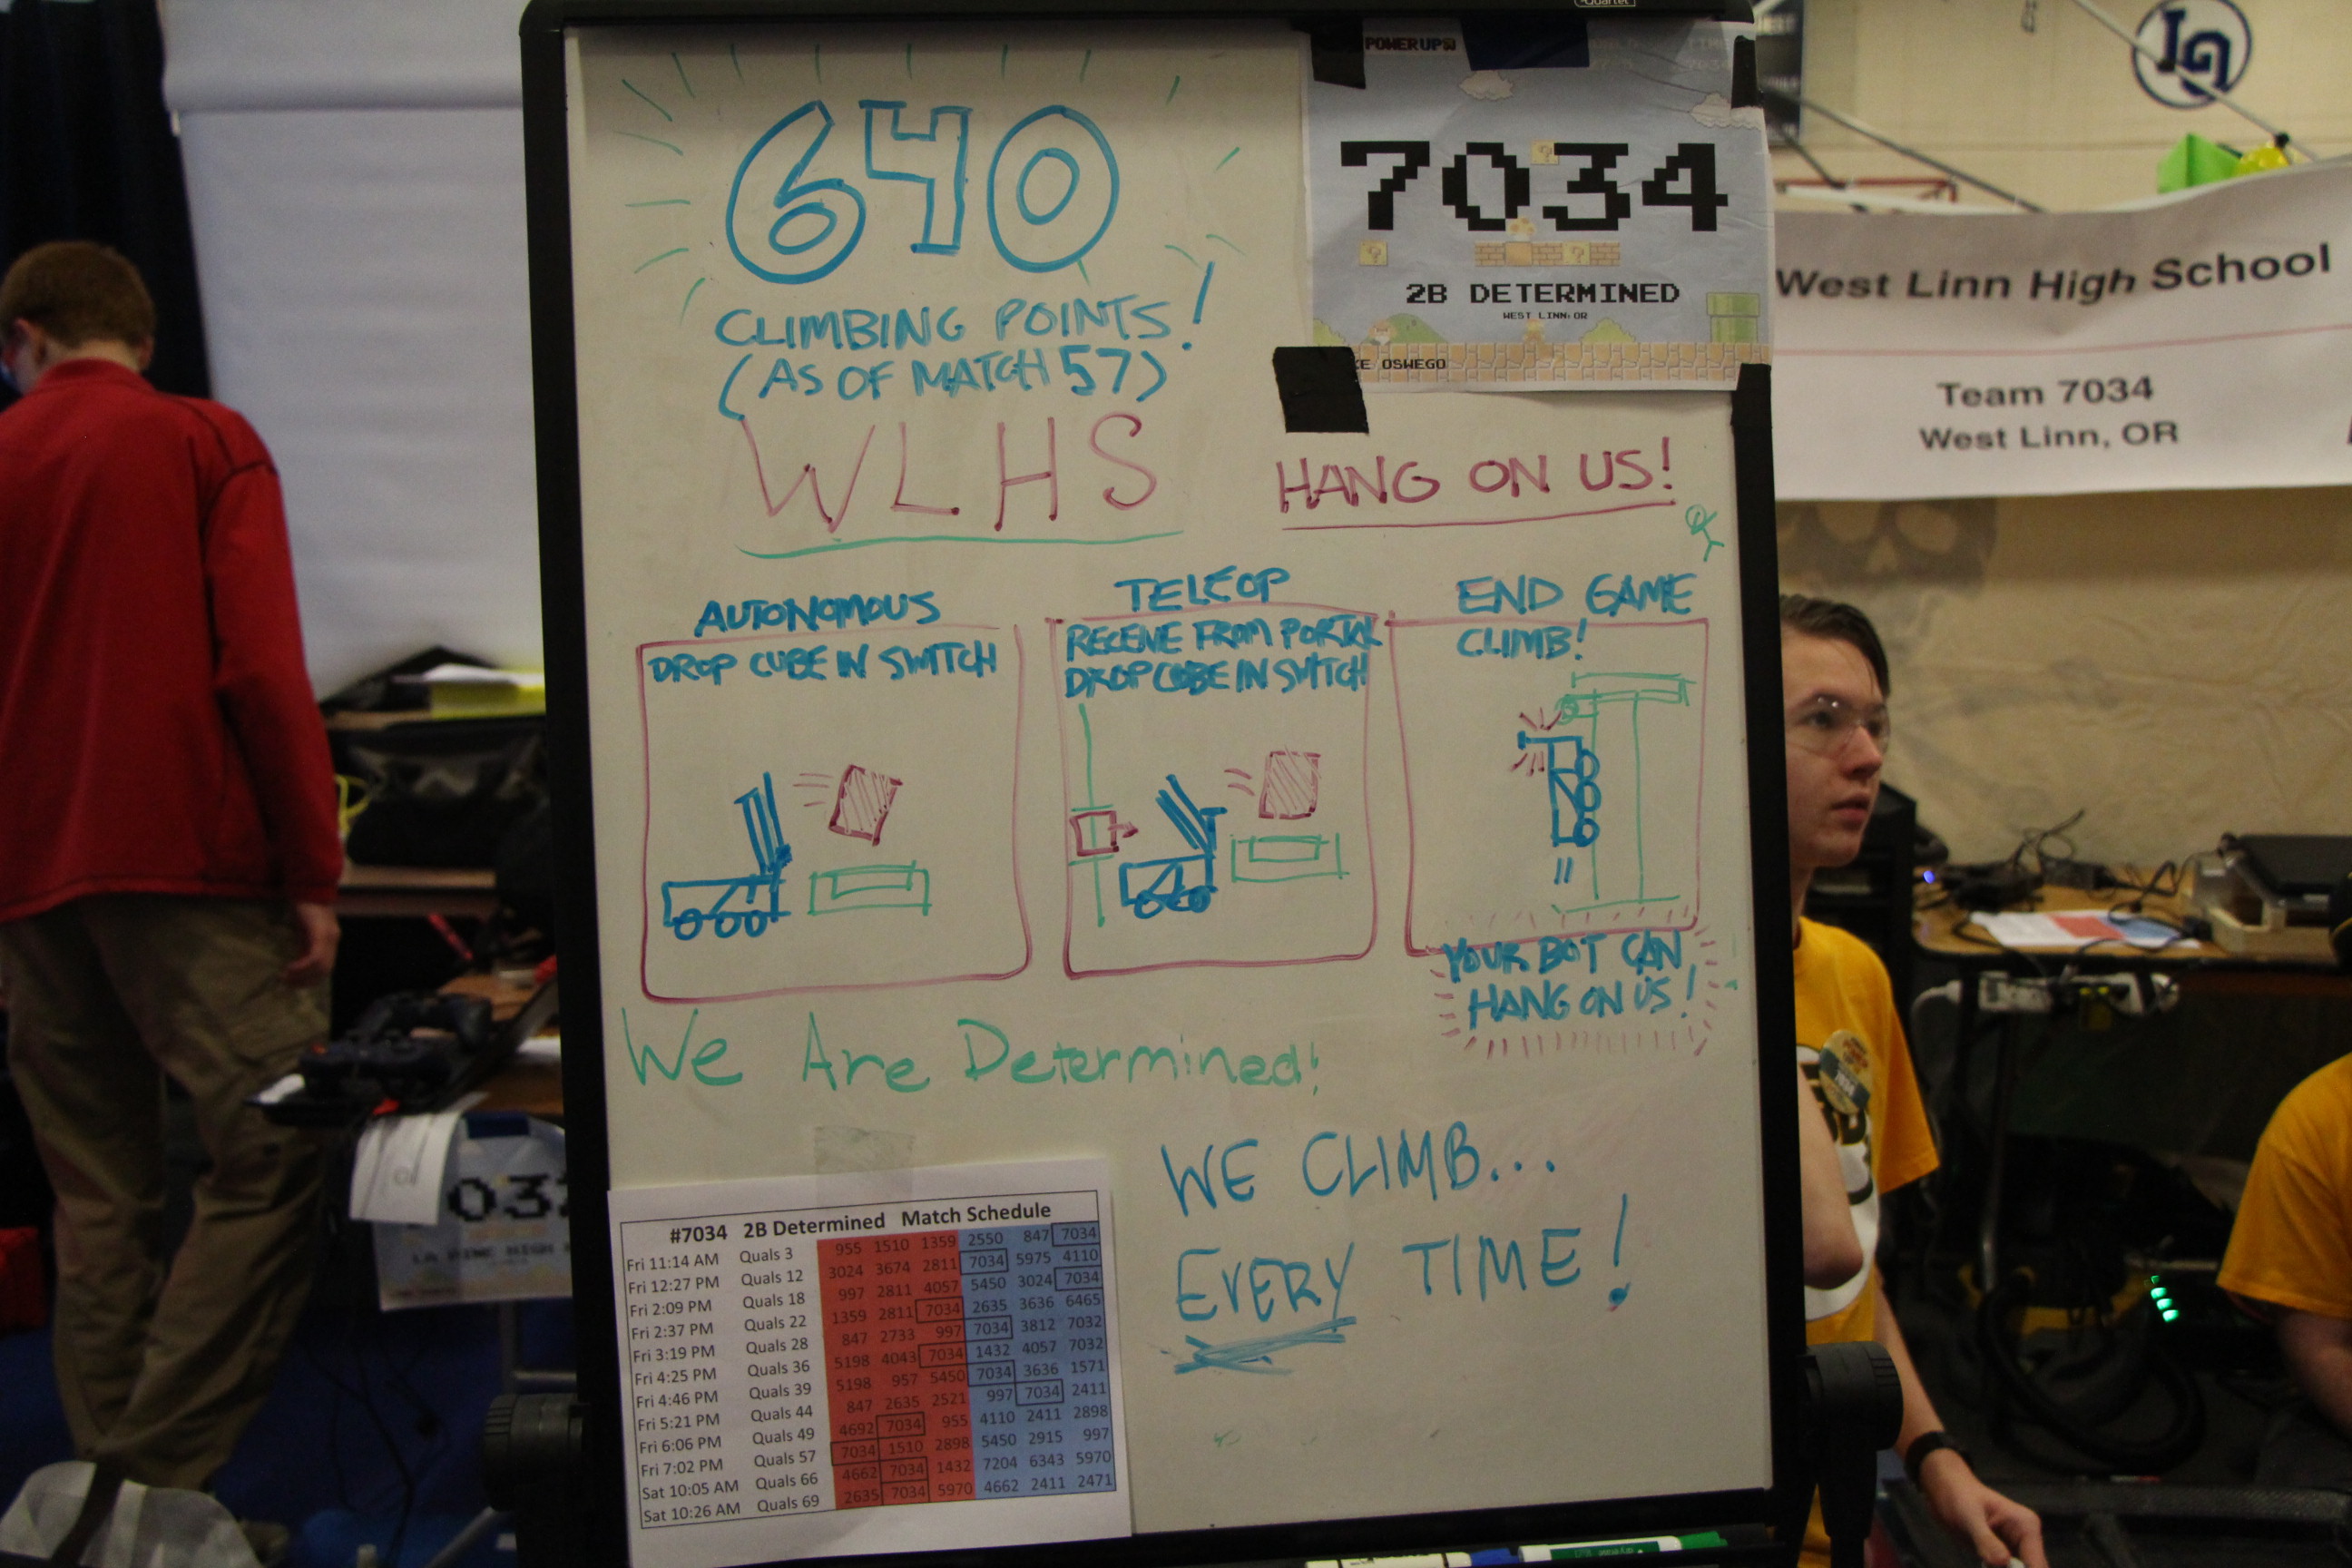 Quartet
640
CLIMBING POINTS!
(AS OF MATCH 57)
WLHS
POWER UP
7034
2B DETERMINED
WEST LINN, OR
KE OSWEGO
HANG ON US!
AUTONOMOUS
DROP CUBE IN SWITCH
TELEOP
RECEIVE FROM PORTAL
DROP CUBE IN SWITCH
END GAME
CLIMB!
YOUR BOT CAN
HANG ON US!
We Are Determined!
WE CLIMB...
EVERY TIME!
#7034 2B Determined Match Schedule
Fri 11:14 AM Quals 3 955 1510 1359 2550 847 7034
Fri 12:27 PM Quals 12 3024 3674 2811 7034 5975 4110
Fri 2:09 PM Quals 18 997 2811 4057 5450 3024 7034
Fri 2:37 PM Quals 22 1359 2811 7034 2635 3636 6465
Fri 3:19 PM Quals 28 847 2733 997 7034 3812 7032
Fri 4:25 PM Quals 36 5198 4043 7034 1432 4057 7032
Fri 4:46 PM Quals 39 5198 957 5450 7034 3636 1571
Fri 5:21 PM Quals 44 847 2635 2521 997 7034 2411
Fri 6:06 PM Quals 49 4692 7034 955 4110 2411 2898
Fri 7:02 PM Quals 57 7034 1510 2898 5450 2915 997
Sat 10:05 AM Quals 66 4662 7034 1432 7204 6343 5970
Sat 10:26 AM Quals 69 2635 7034 5970 4662 2411 2471
LO
West Linn High School
Team 7034
West Linn, OR
703